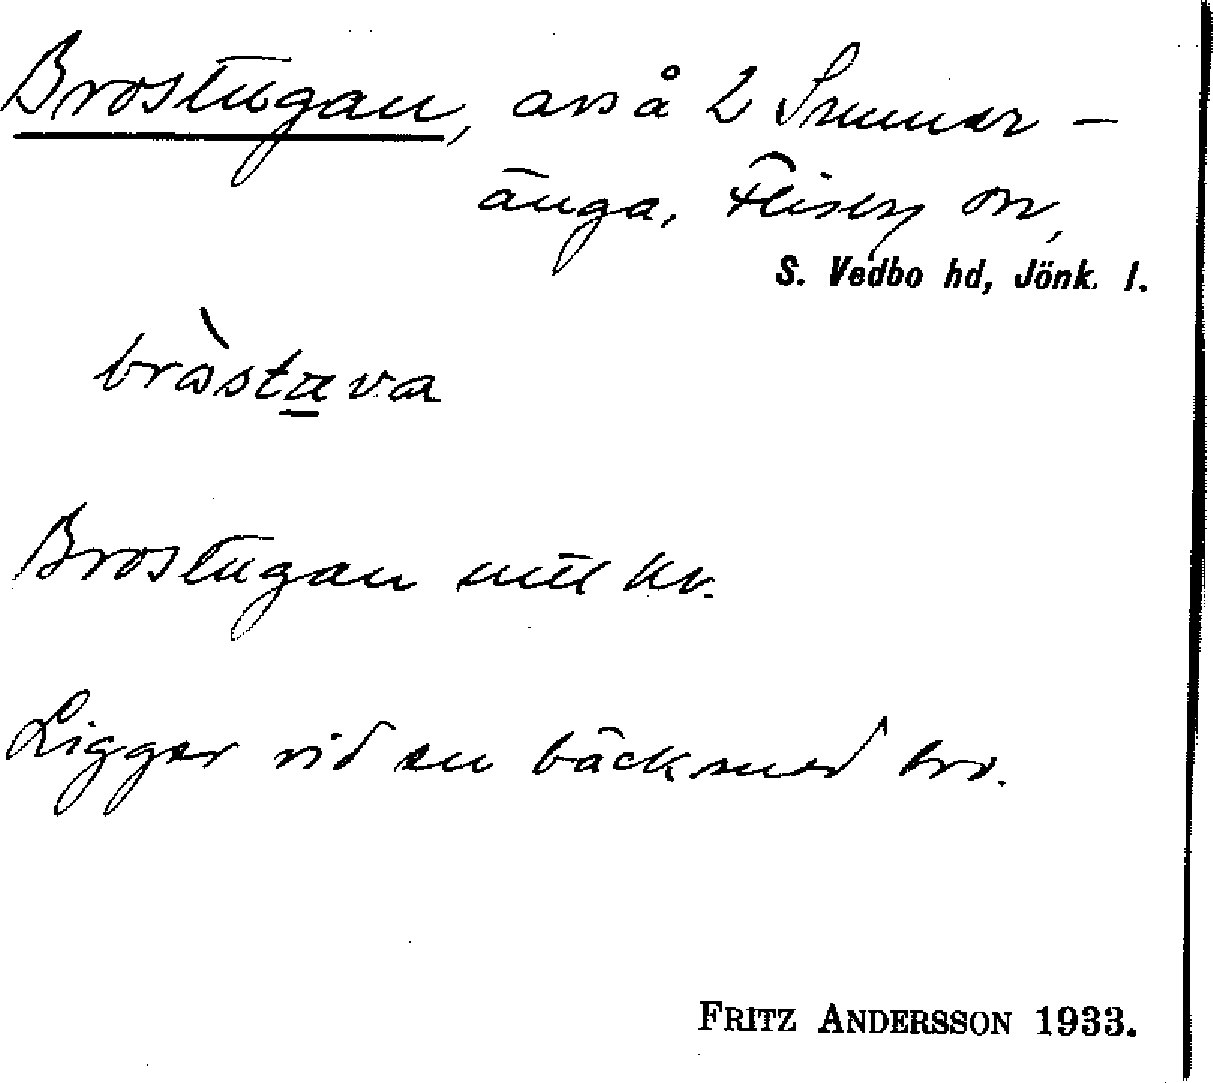 Brostugan, avs å 2 Sunner-
änga, Flisby sn,
S. Vedbo hd, Jönk. l.
bròstava
Brostugan utt kv.
Ligger vid en bäck med bro.
FRITZ ANDERSSON 1933.